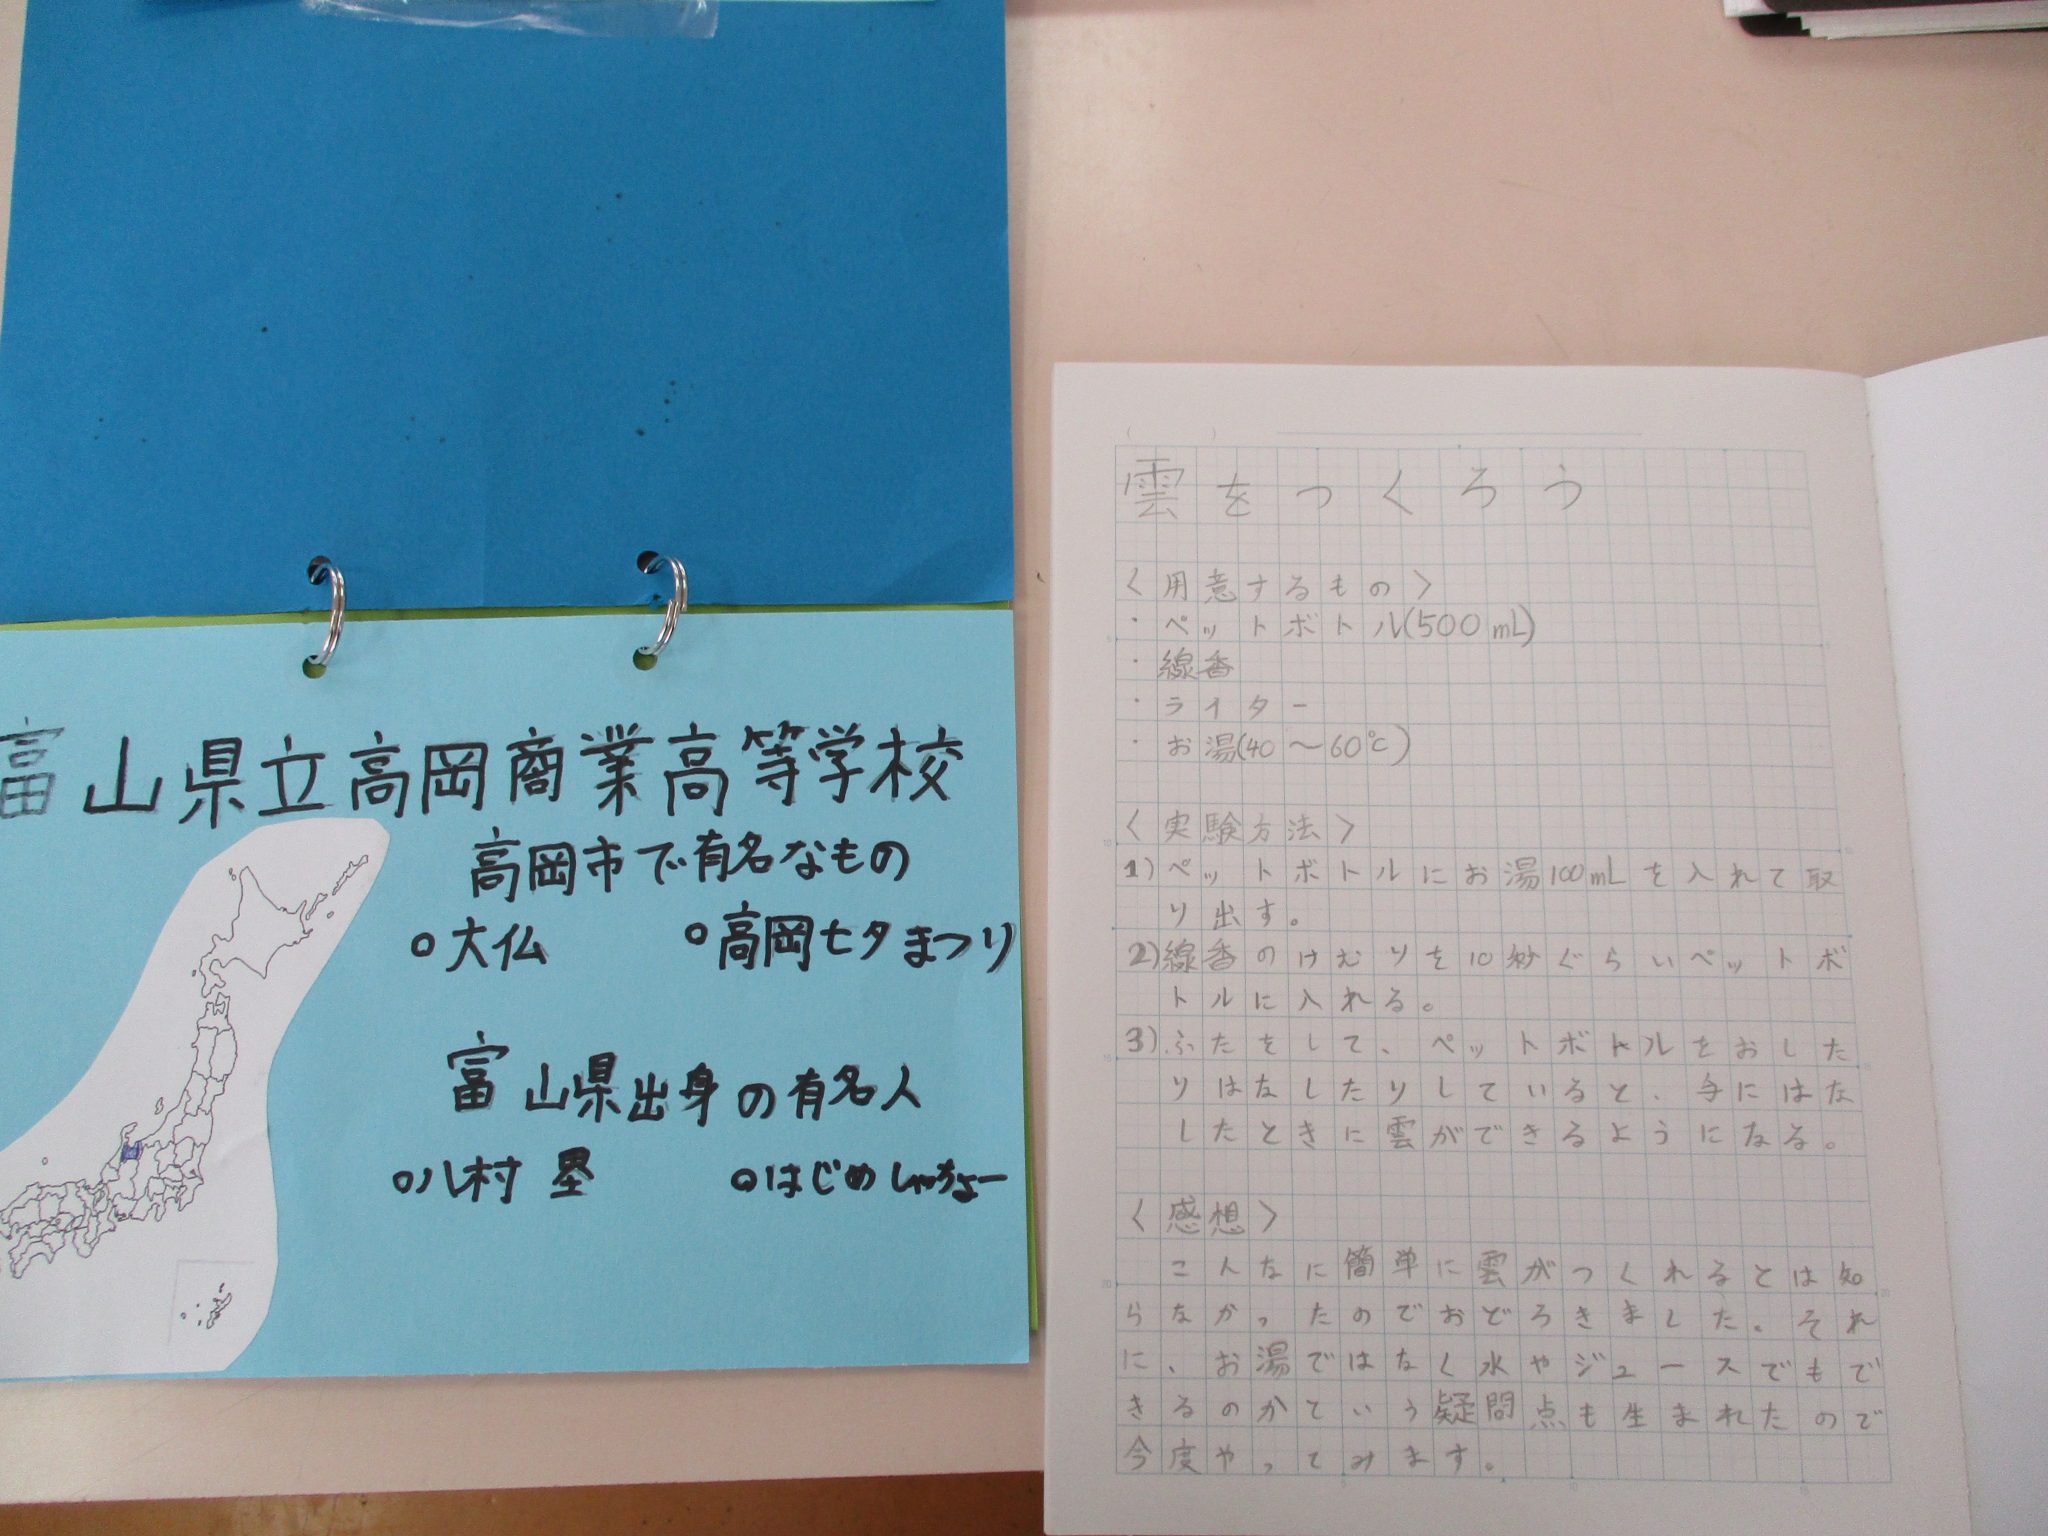 富山県立高岡商業高等学校
高岡市で有名なもの
○大仏　○高岡七夕まつり
富山県出身の有名人
○八村 塁　○はじめしゃちょー
雲をつくろう
〈用意するもの〉
・ペットボトル(500mL)
・線香
・ライター
・お湯(40〜60℃)
〈実験方法〉
1)ペットボトルにお湯100mLを入れて取
り出す。
2)線香のけむりを10秒ぐらいペットボ
トルに入れる。
3)ふたをして、ペットボトルをおした
りはなしたりしていると、手にはな
したときに雲ができるようになる。
〈感想〉
こんなに簡単に雲がつくれるとは知
らなかったのでおどろきました。それ
に、お湯ではなく水やジュースでもで
きるのかていう疑問点も生まれたので
今度やってみます。